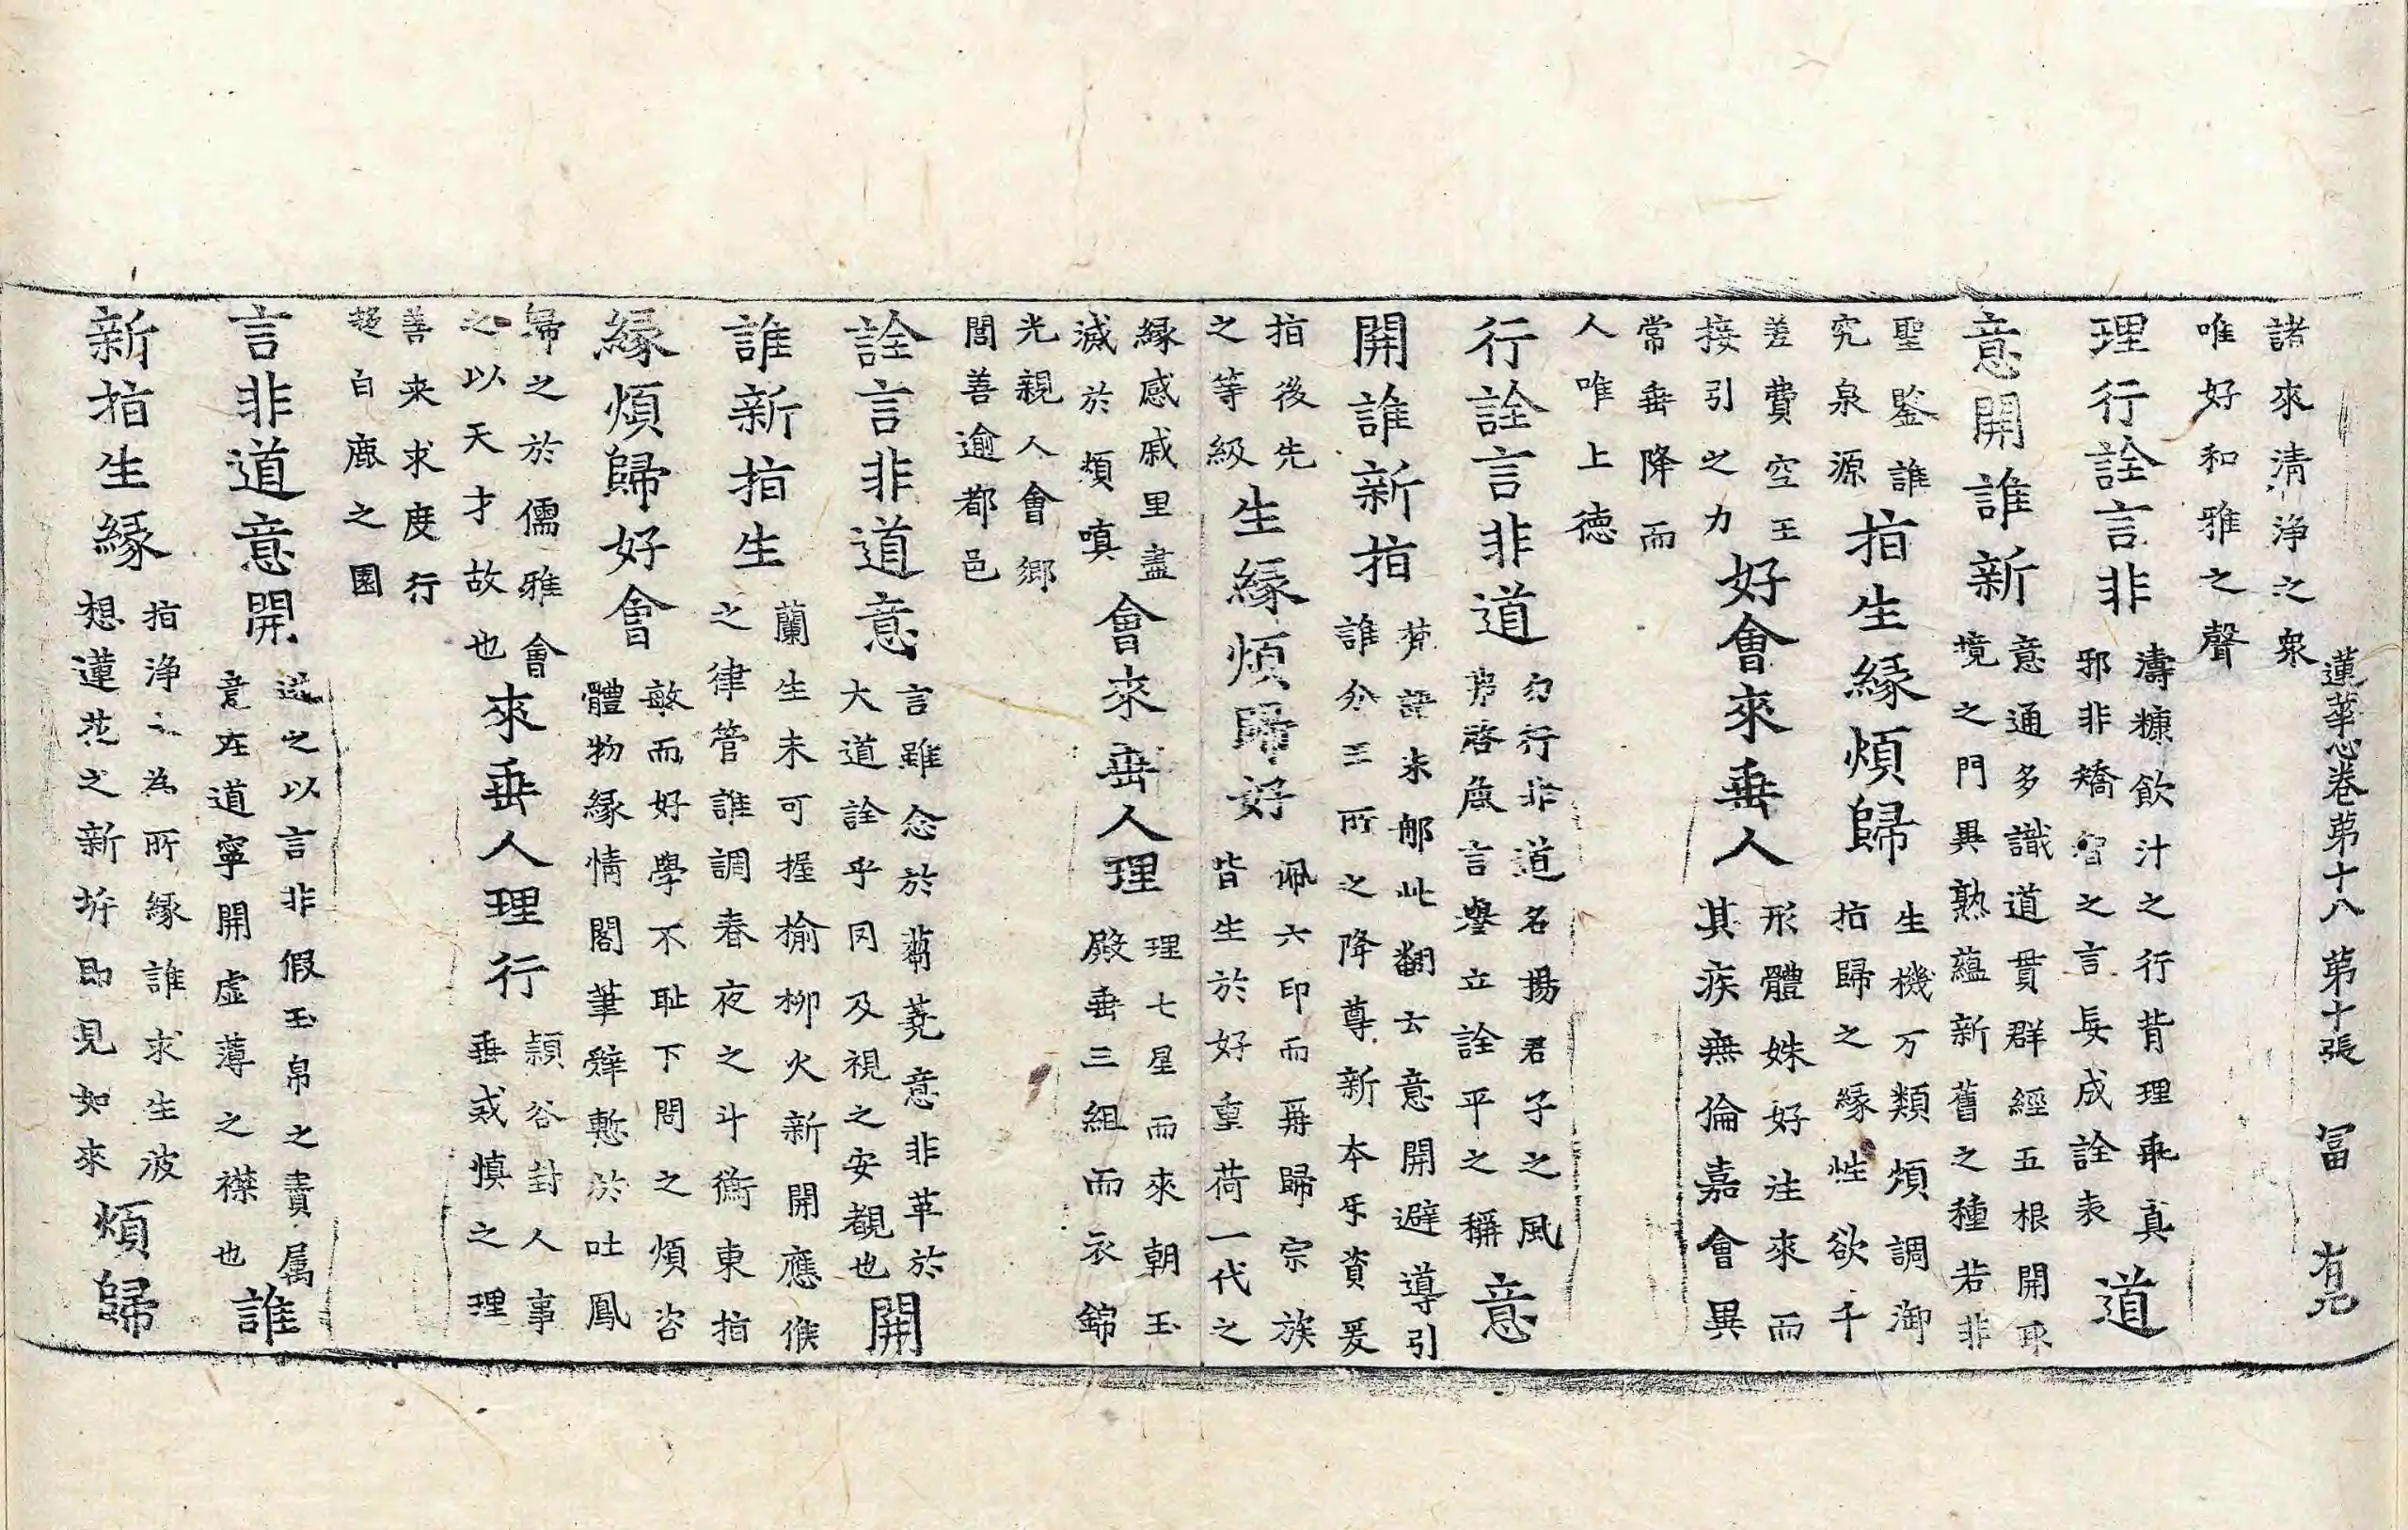 蓮華心卷第十八 第十張 冨 有兄
諸來清淨之衆
唯好和雅之聲
理行詮言非 濤糠飲汁之行背理乖真 邪非矯智之言長成詮表 道
意開誰新 意通多識道貫群經五根開取 境之門異熟蘊新舊之種若非
聖鑒誰 究泉源 指生緣煩歸 生機万類煩調御 指歸之緣性欲千
差費空王 接引之力 好會來垂人 形體姝好注來而 其疾無倫嘉會異
常垂降而
人唯上德
行詮言非道 勿行非道名揚君子之風 弗啓麁言譽立詮平之稱 意
開誰新指 梵語末那此翻云意開避導引 誰分三所之降尊新本牙資爰
指後先 之等級 生緣煩歸好 佩六印而再歸宗族 皆生於好重荷一代之
緣感戚里盡 滅於煩嗔 會來垂人理 理七星而來朝玉 殿垂三組而衣錦
光親人會鄉
閭善逾都邑
詮言非道意 言雖念於蒭蕘意非革於 大道詮乎同及視之安覩也 開
誰新指生 蘭生未可握榆柳火新開應候 之律管誰調春夜之斗衡東指
緣煩歸好會 敏而好學不耻下問之煩咨 體物緣情閣筆辤慙於吐鳳
歸之於儒雅會 之以天才故也 來垂人理行 頴谷封人事 垂戒慎之理
善来求度行
趍白鹿之園
言非道意開 述之以言非假玉帛之賷属 意在道寧開虛薄之襟也 誰
新指生緣 指淨之為所緣誰求生波 想蓮花之新坼即見如來 煩歸